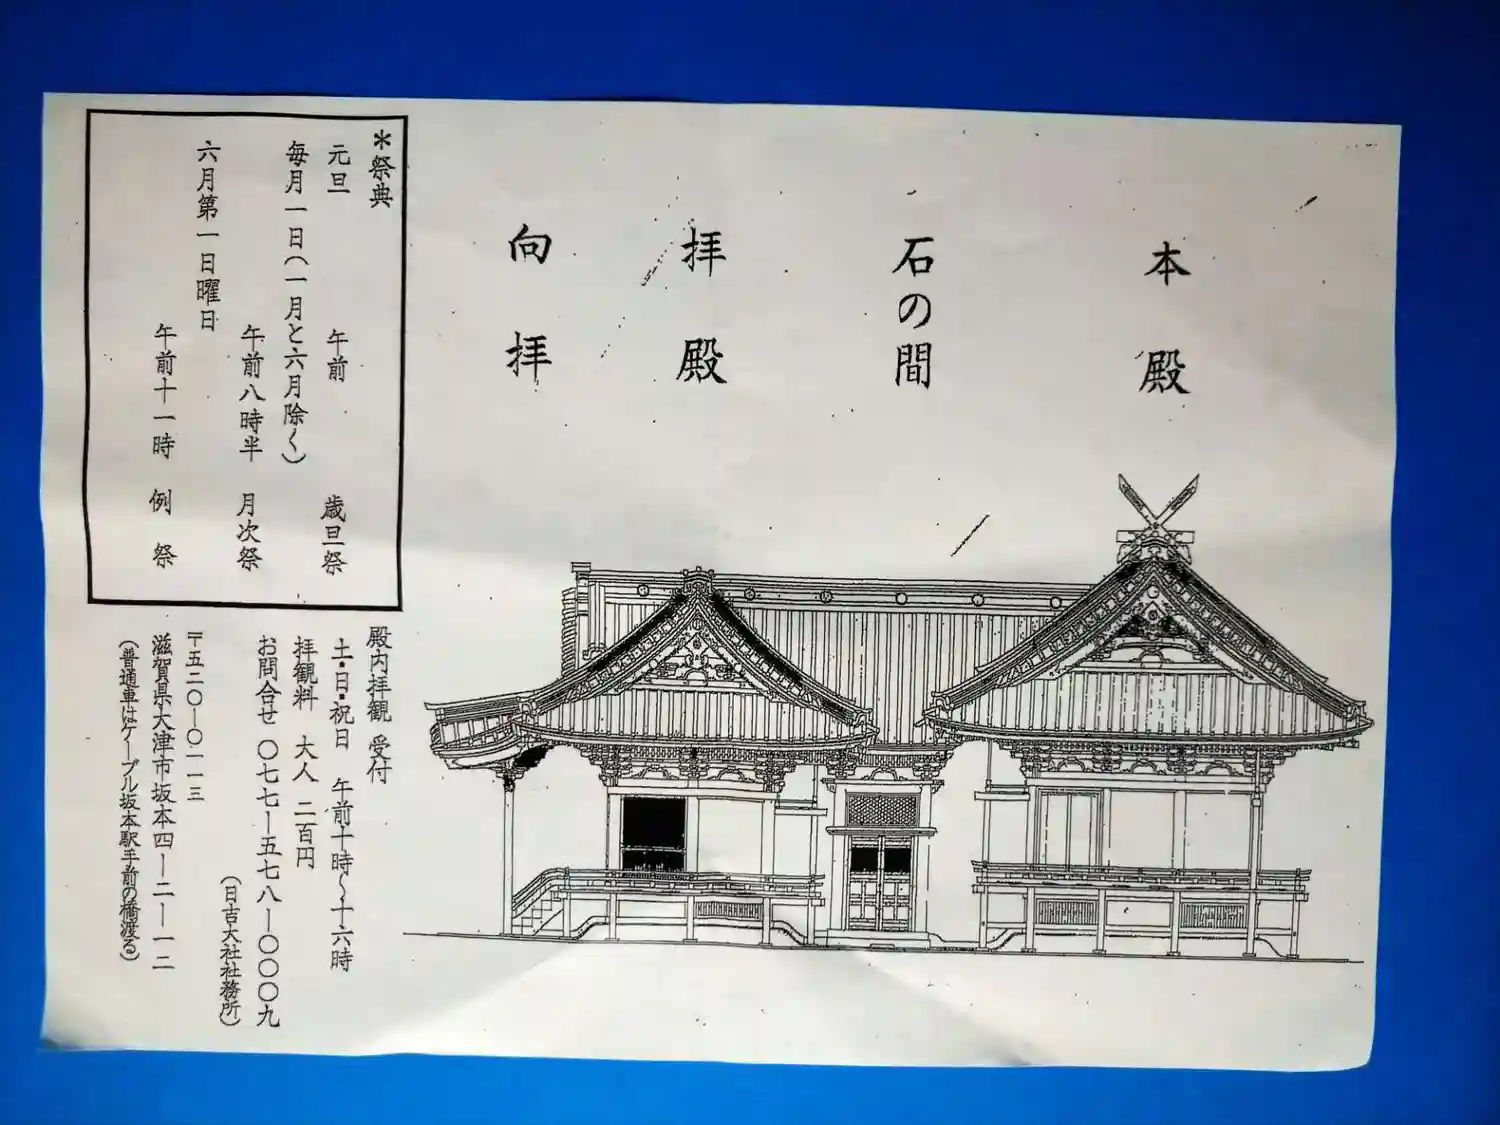 本殿
石の間
拝殿
向拝
*祭典
元旦 午前 歳旦祭
毎月一日(一月と六月除く)
午前八時半 月次祭
六月第一日曜日
午前十一時 例祭
殿内拝観 受付
土・日・祝日 午前十時〜十六時
拝観料 大人 二百円
お問合せ 〇七七―五七八―〇〇〇九
(日吉大社社務所)
〒五二〇―〇一一三
滋賀県大津市坂本四―二―一二
(普通車はケーブル坂本駅手前の橋渡る)